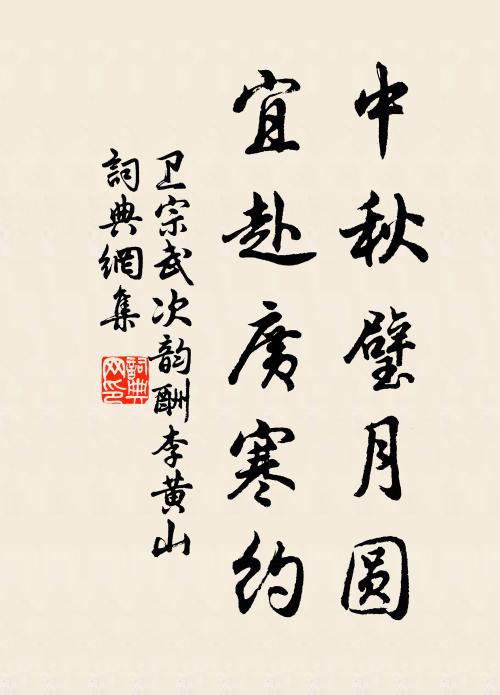 中秋璧月圆
宜赴广寒约
卫宗武次韵酬李黄山
詞典網集
詞典
网印